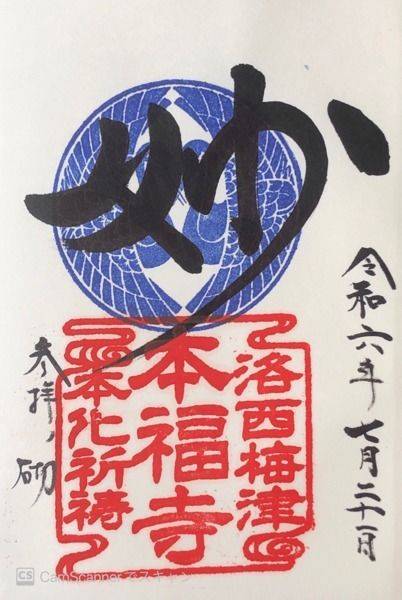 令和六年七月二十一日
妙
洛西梅津
本福寺
本化祈祷
参拝ノ砌
CS CamScannerでスキャン